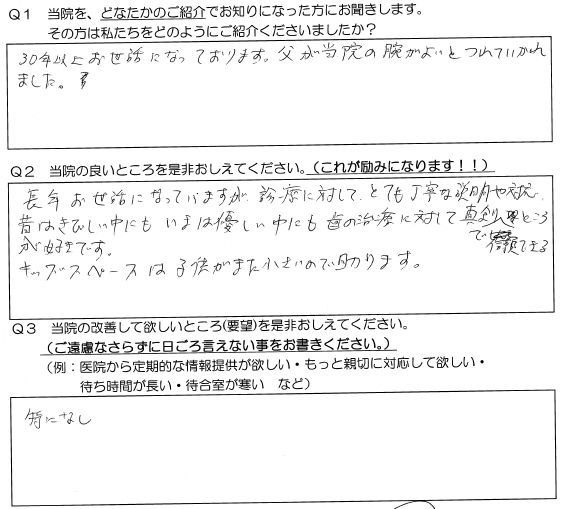 Q1 当院を、どなたかのご紹介でお知りになった方にお聞きします。
その方は私たちをどのようにご紹介くださいましたか?
30年以上お世話になっております。父が当院の腕がよいとつれていかれ
ました。
Q2 当院の良いところを是非おしえてください。(これが励みになります!!)
長年お世話になっていますが、診療に対して、とても丁寧な説明や対応、
昔はきびしい中にもいまは優しい中にも歯の治療に対して真剣なところ
が好きです。
で信頼できる
キッズスペースは子供がまだ小さいので助かります。
Q3 当院の改善して欲しいところ(要望)を是非おしえてください。
(ご遠慮なさらずに日ごろ言えない事をお書きください。)
(例:医院から定期的な情報提供が欲しい・もっと親切に対応して欲しい・
待ち時間が長い・待合室が寒い など)
特になし